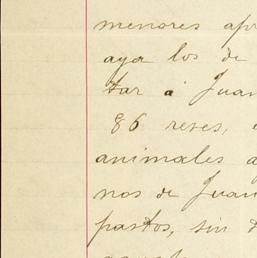 menores apr
aya los de
tar á Juan
86 reses,
animales a
nos de Juan
pastos, sin d